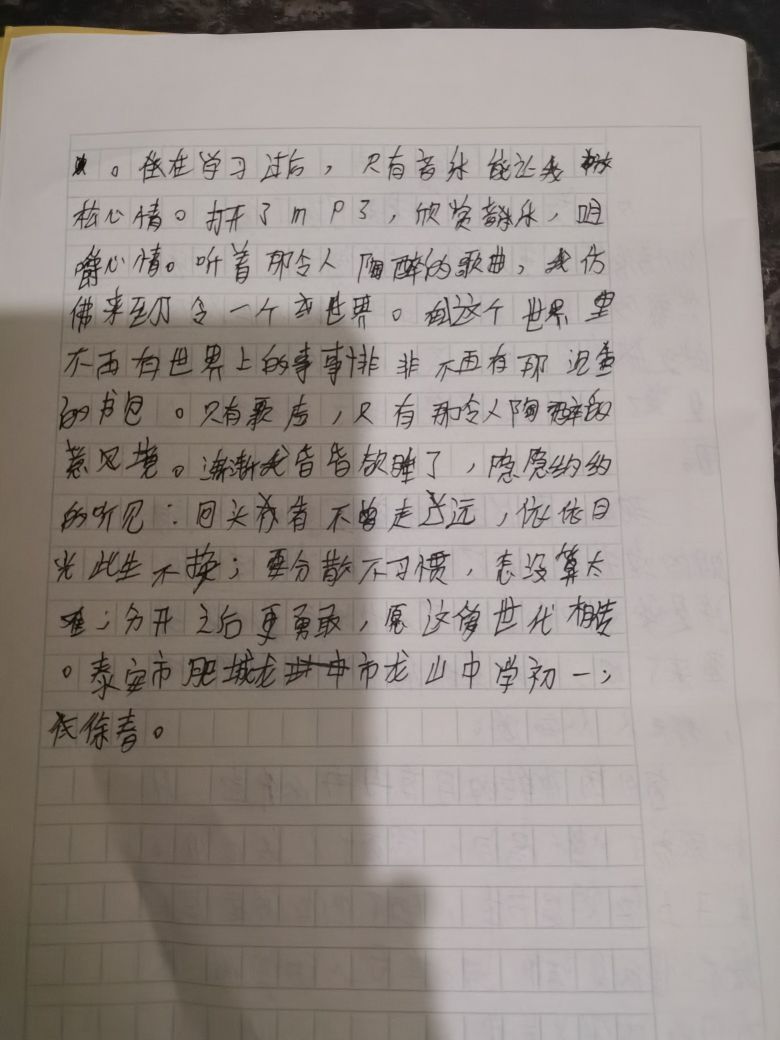 。在学习过后，只有音乐能让我放
松心情。打开了mP3，欣赏音乐，咀
嚼心情。听着那令人陶醉的歌曲，我仿
佛来到令一个世界。在这个世界里
不再有世界上的事事非非不再有那沉重
的书包。只有歌声，只有那令人陶醉的
意境。渐渐我昏昏欲睡了，隐隐约约
的听见：回头 不曾走远，依依目
光此生不换；要分散不习惯，怎没算太
难；分开之后更勇敢，愿这份世代相传
。泰安市肥城龙市龙山中学初一；
徐春。